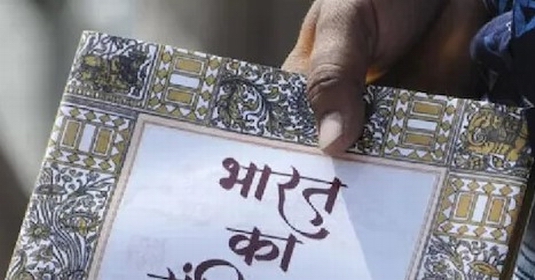 भारत
का